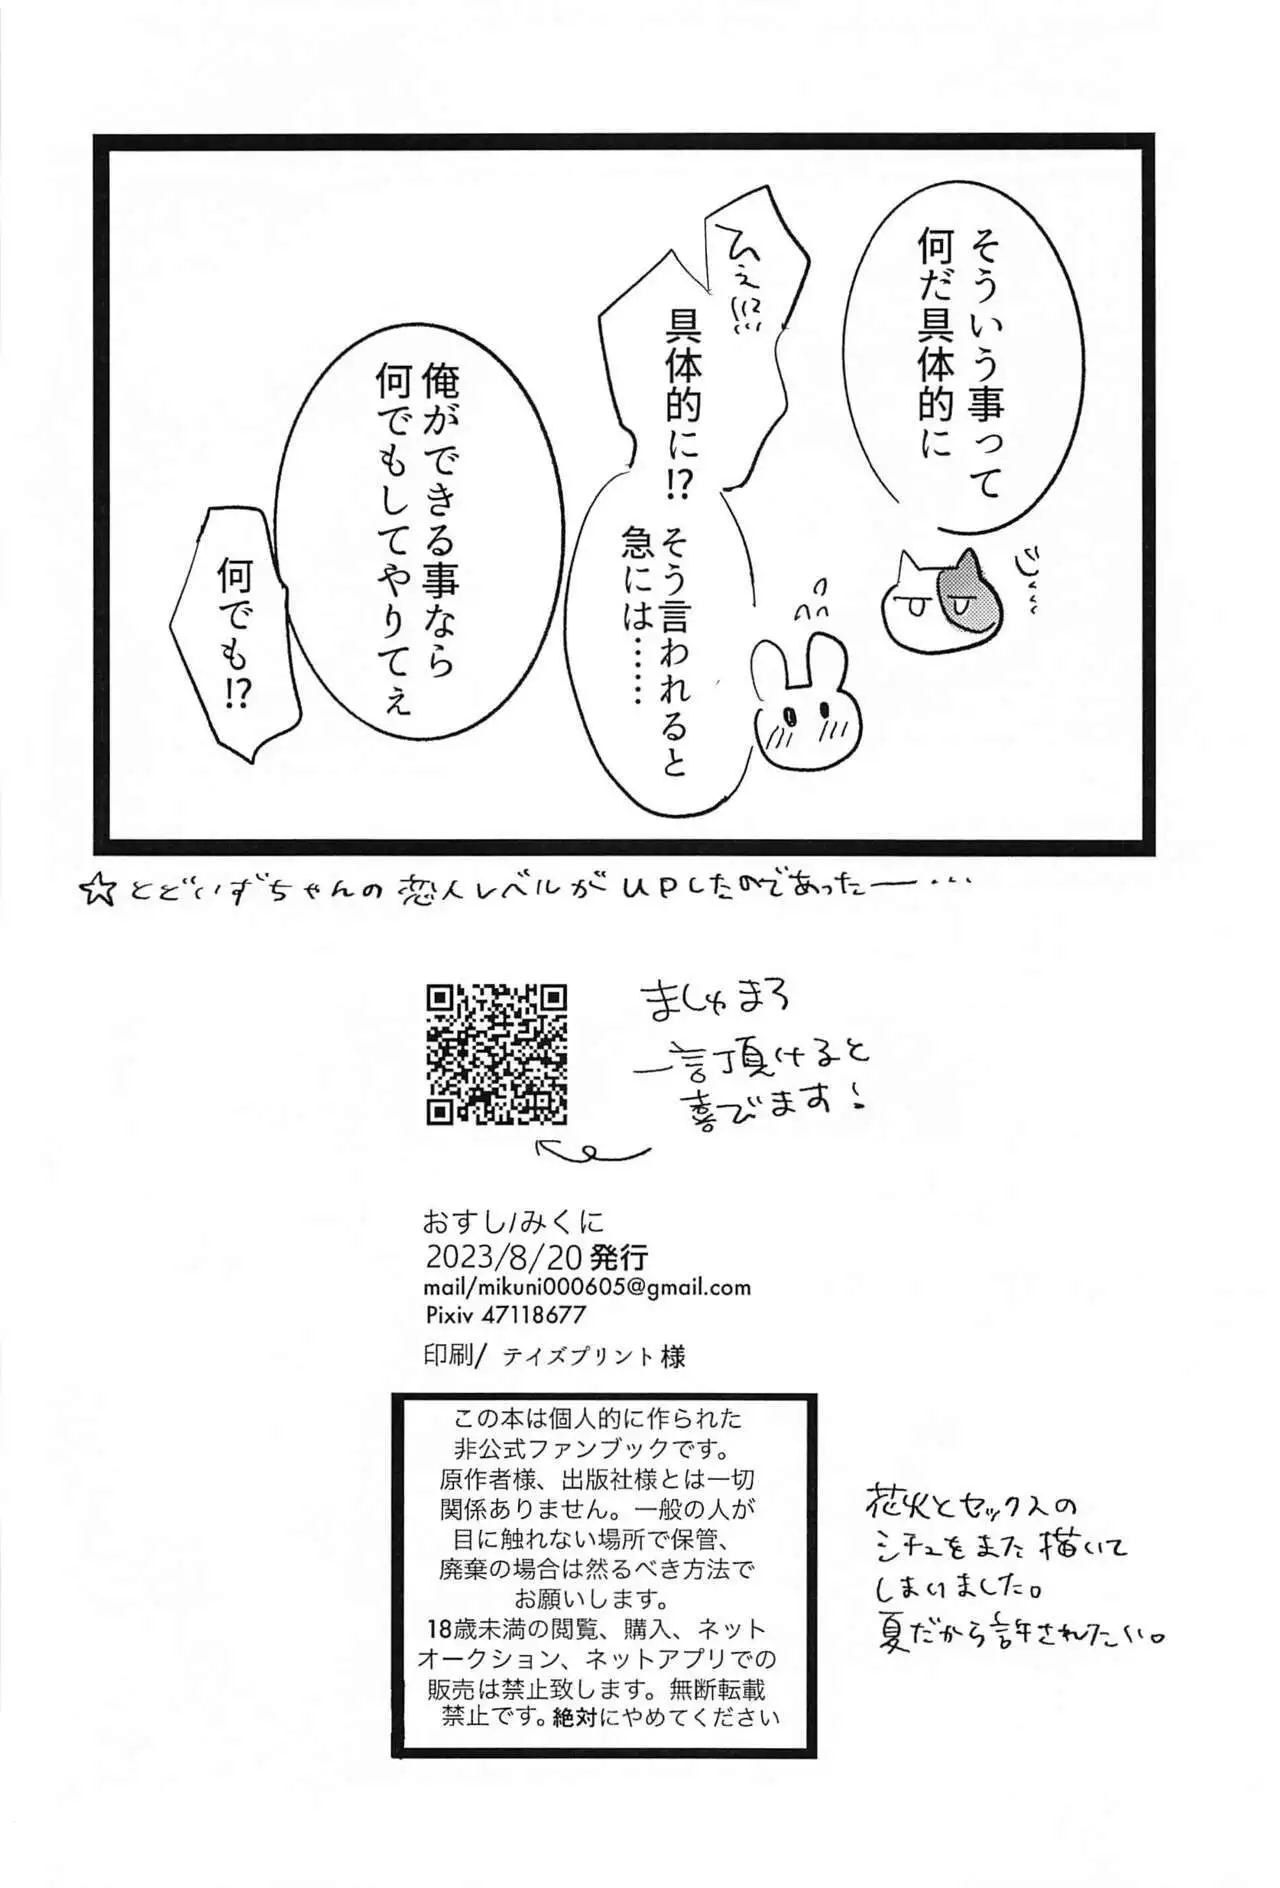 そういう事って
何だ具体的に
じ…
ひぇ!!!
具体的に!?
そう言われると
急には……
俺ができる事なら
何でもしてやりてぇ
何でも!?
☆とどいずちゃんの恋人レベルがUPしたのであったー…
ましゅまろ
一言頂けると
喜びます!
おすし/みくに
2023/8/20発行
mail/mikuni000605@gmail.com
Pixiv 47118677
印刷/ テイズプリント様
この本は個人的に作られた
非公式ファンブックです。
原作者様、出版社様とは一切
関係ありません。一般の人が
目に触れない場所で保管、
廃棄の場合は然るべき方法で
お願いします。
18歳未満の閲覧、購入、ネット
オークション、ネットアプリでの
販売は禁止致します。無断転載
禁止です。絶対にやめてください
花火とセックスの
シチュをまた描いて
しまいました。
夏だから許されたい。